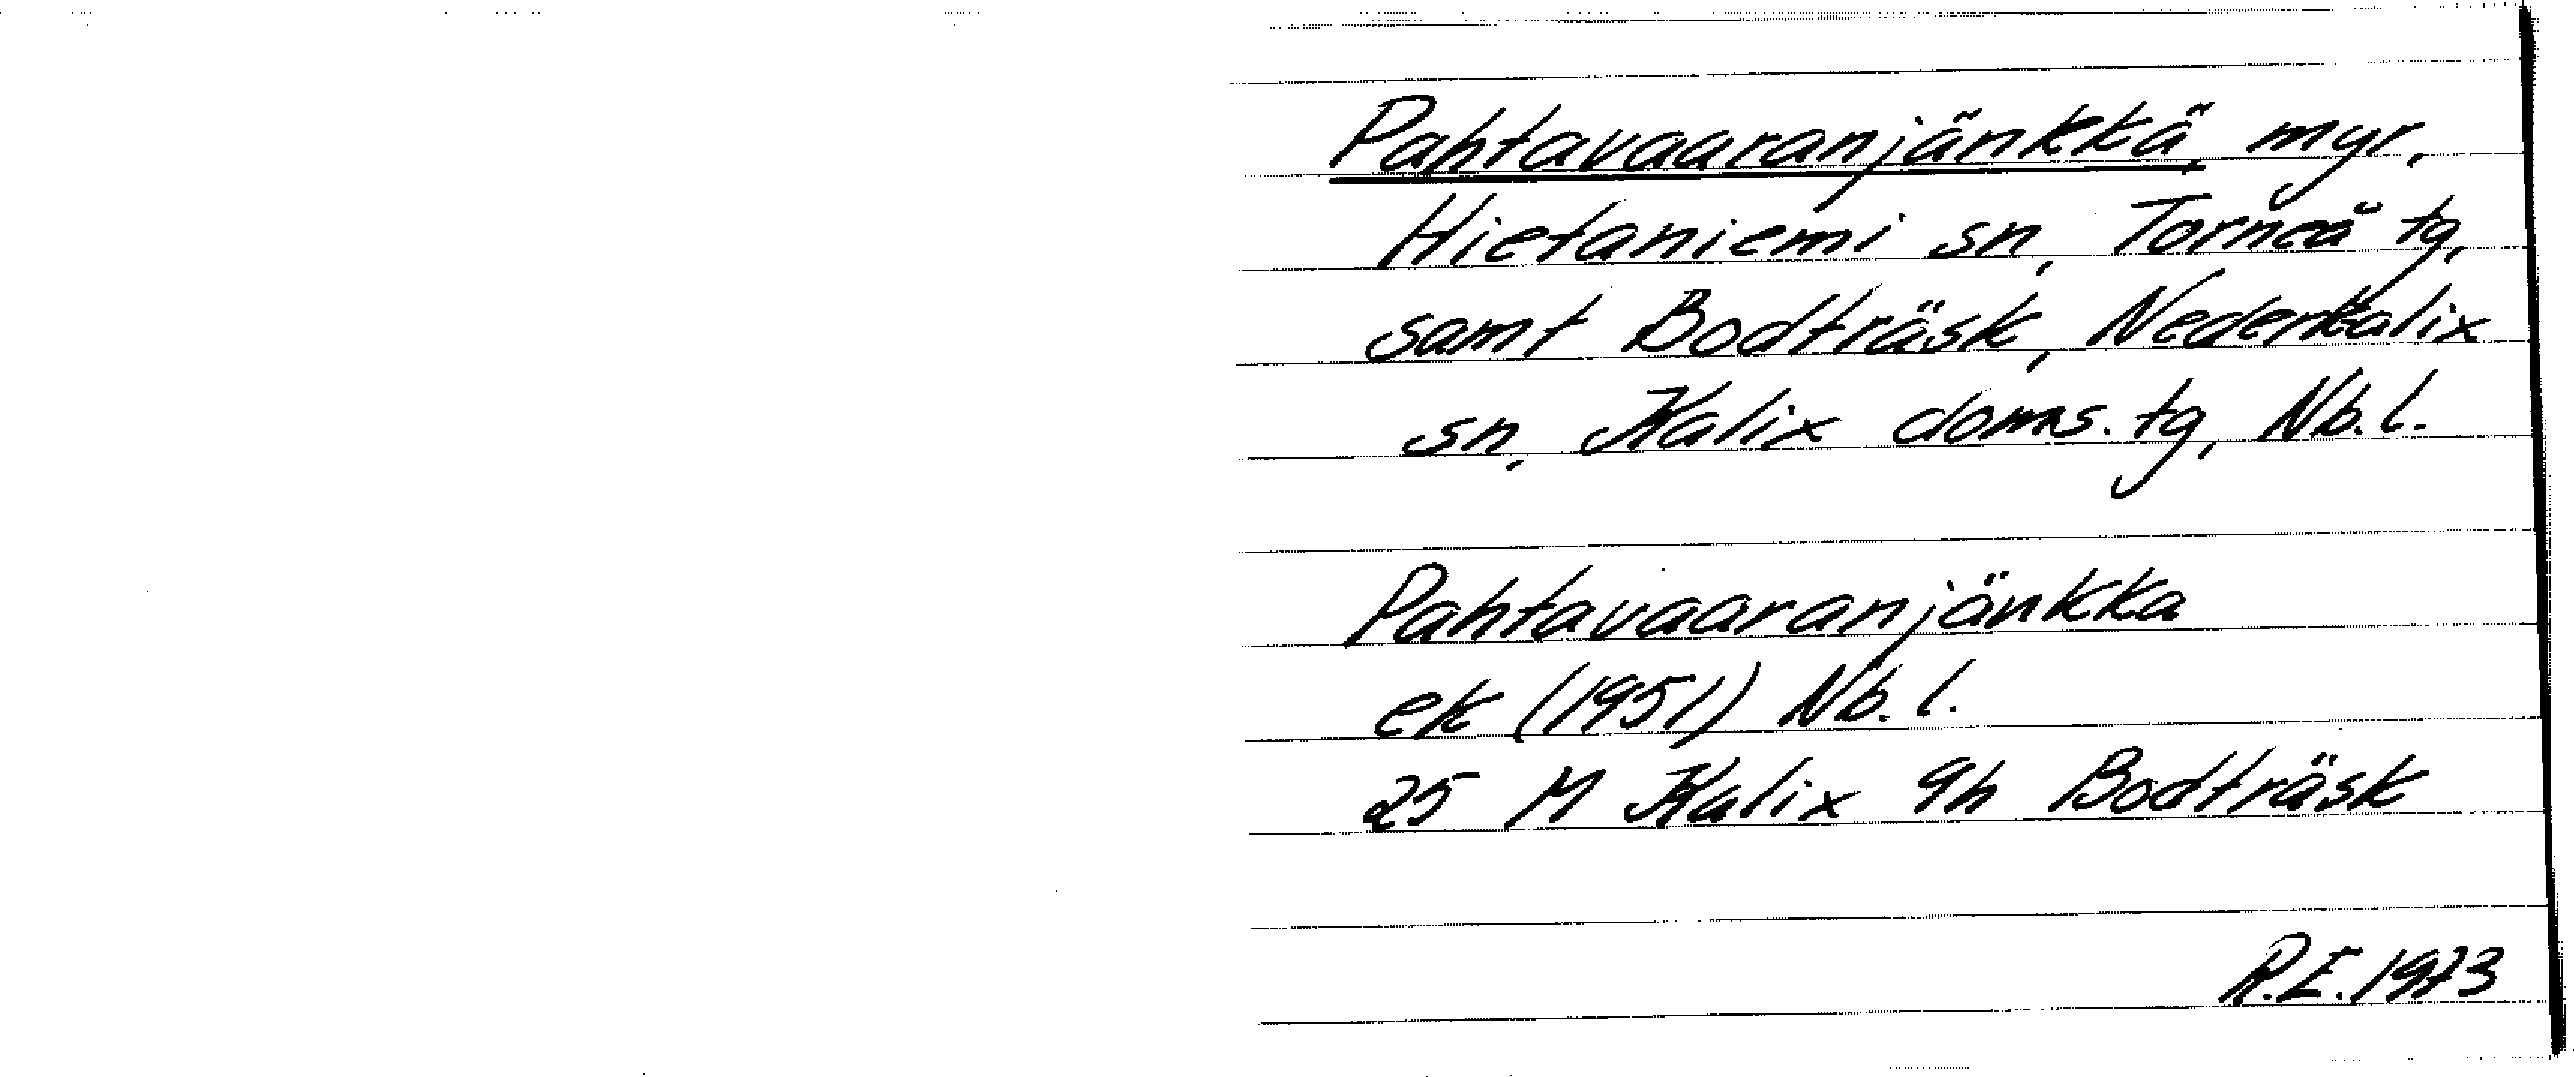 Pahtavaaranjänkkä, myr,
Hietaniemi sn, Torneå tg,
samt Bodträsk, Nederkalix
sn, Kalix doms. tg, Nb.l.
Pahtavaaranjänkka
ek (1951) Nb.l.
25 M Kalix 9h Bodträsk
R.E. 1973